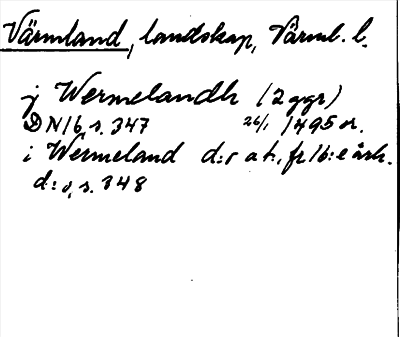 Värmland, landskap, Värml. l.
j Wermelandh (2 ggr)
DN 16, s. 347 26/1 1495 or.
i Wermeland d:o at., fr. 16:e årh.
d:o, s. 348